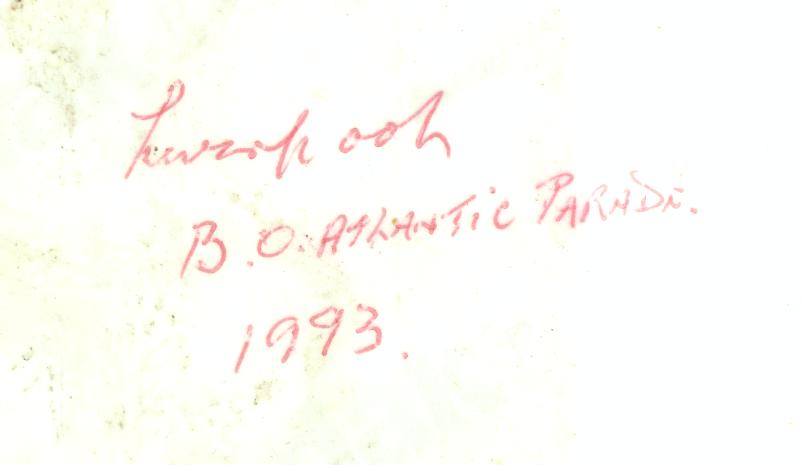 Liverpool
B.O. ATLANTIC PARADE.
1993.